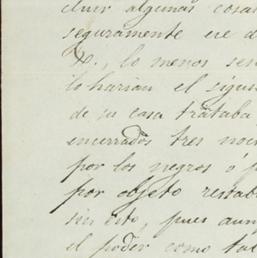 cluir algunas cosas
seguramente
lo menos
lo harian el
de su casa trataba
encerrados tres
por los negros ó
por objeto
sin esto, pues aun
el poder como